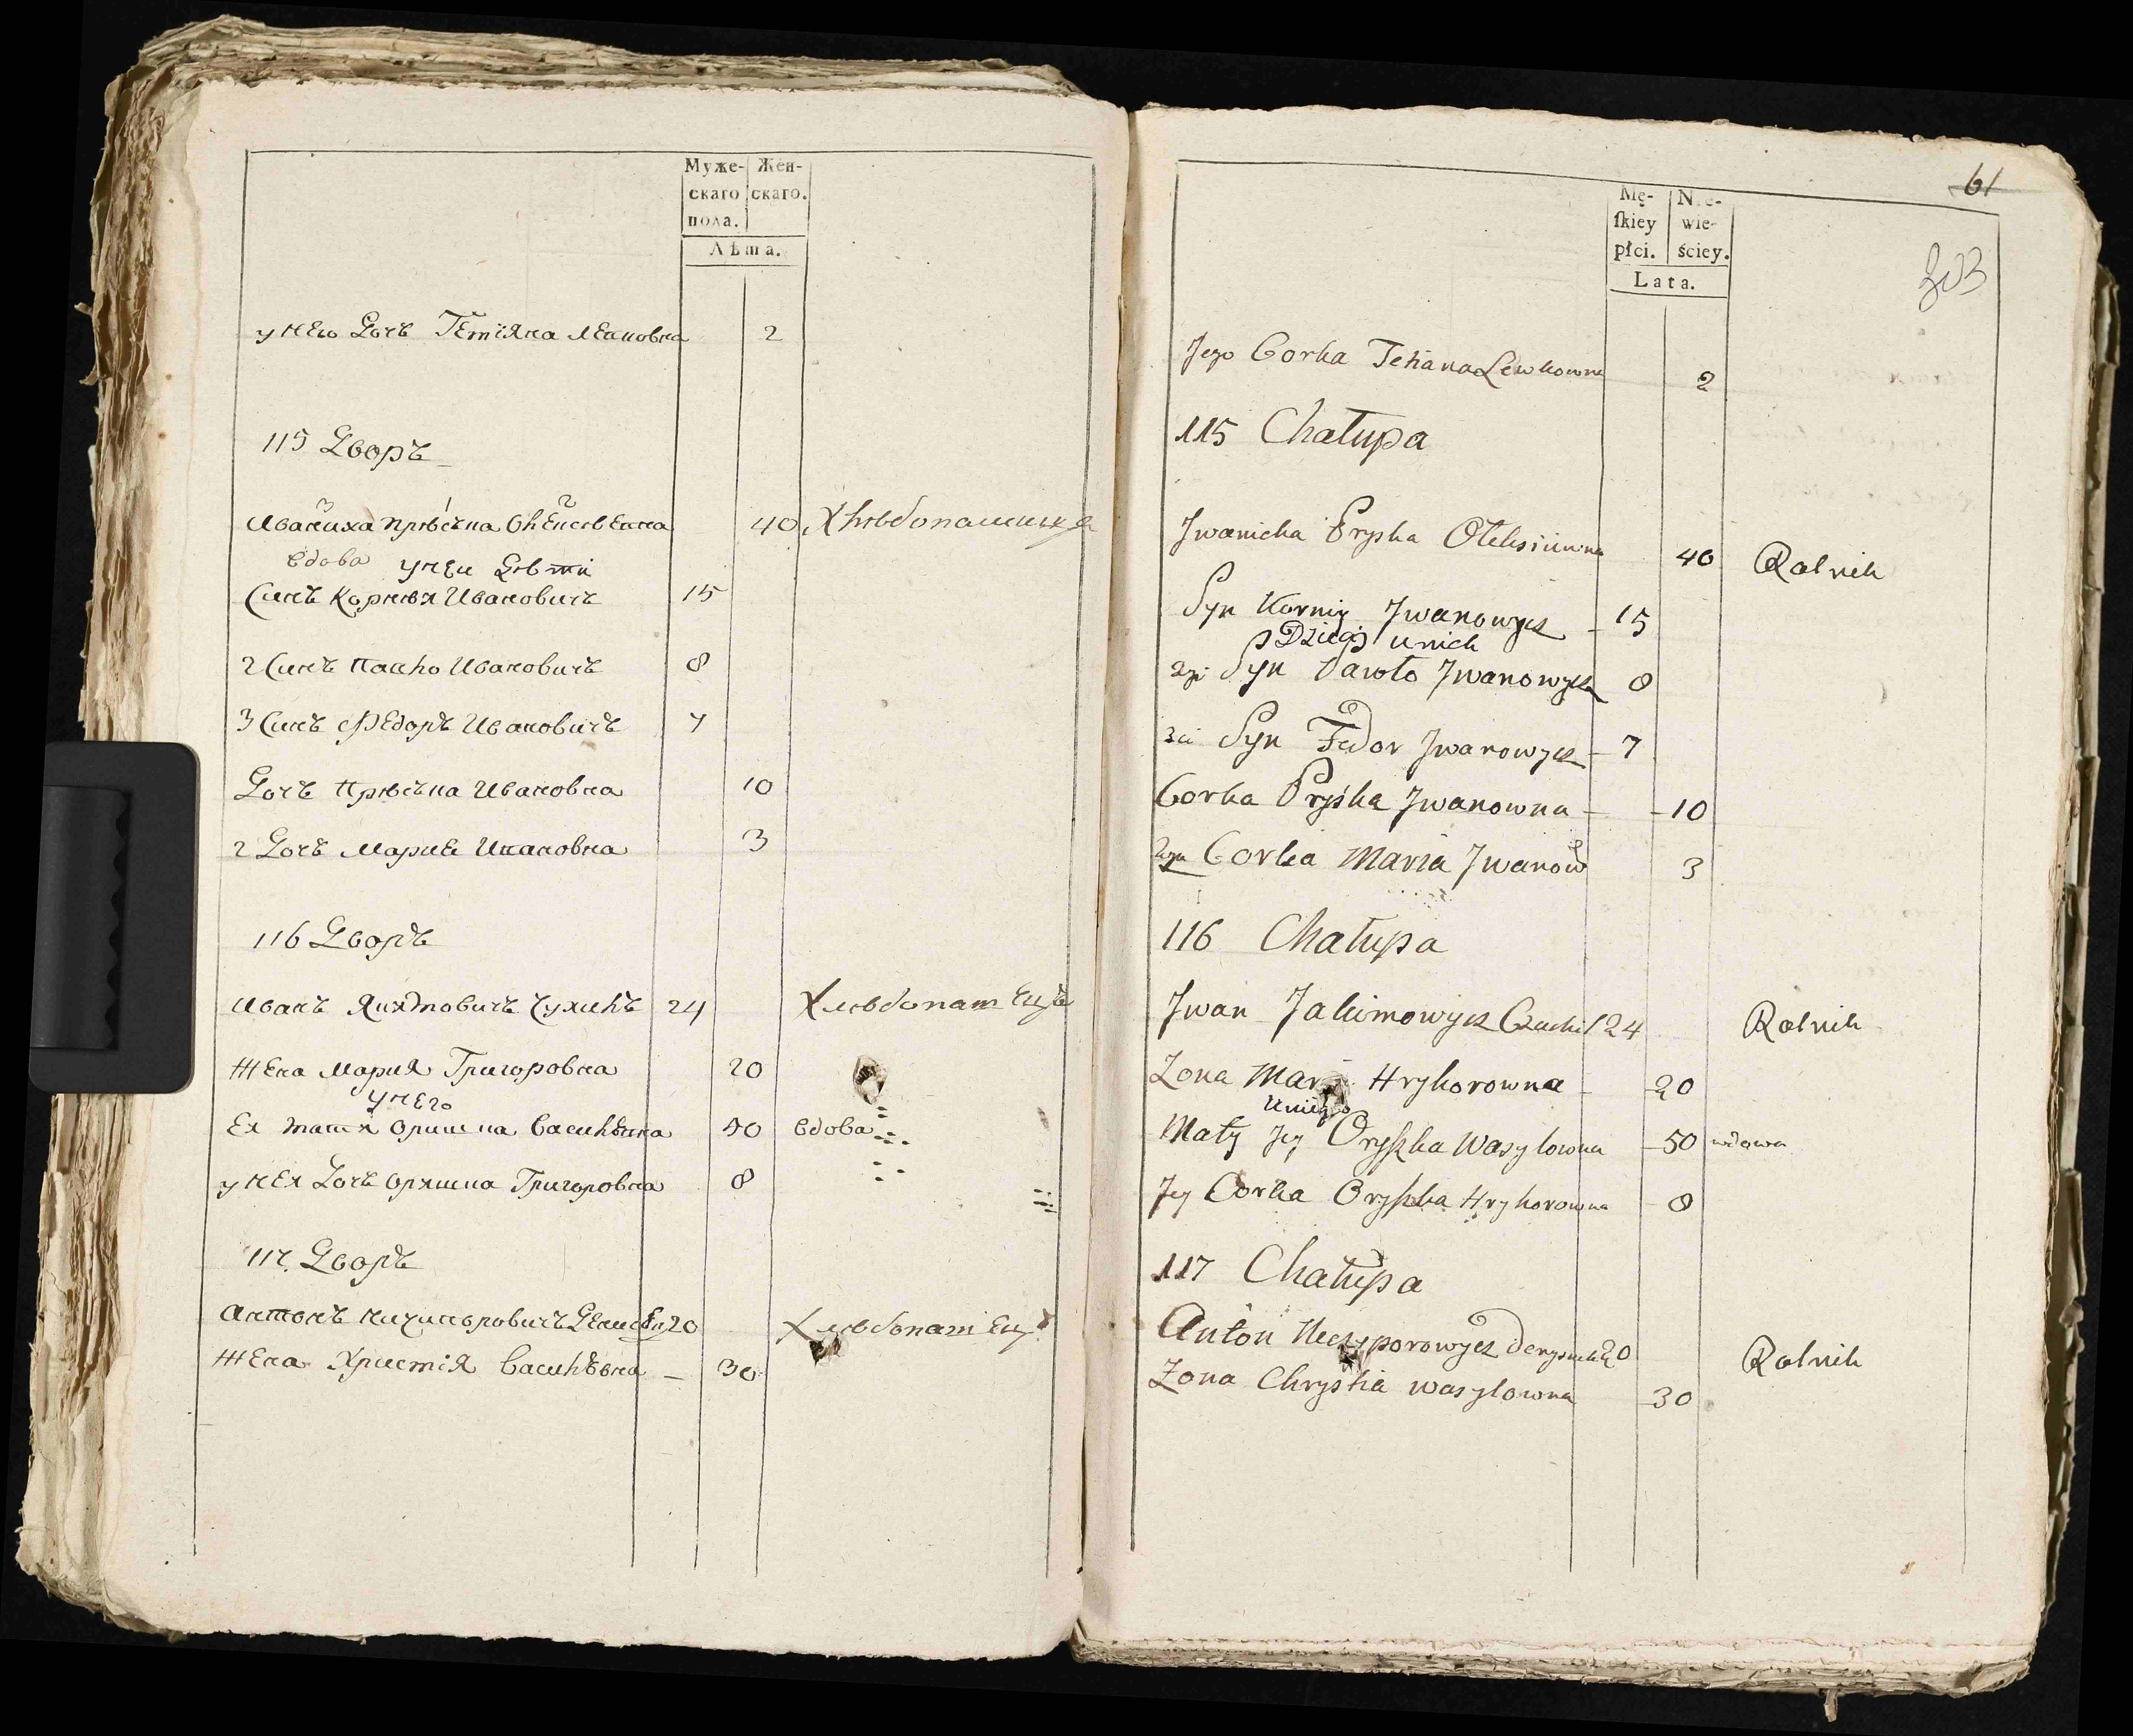 Муже- Жен-
скаго скаго.
пола.
Лѣта.
у него Дочь Тетіяна Левковна 2
115 Дворъ
Иваниха Приська Олексѣевна 40 Хлѣбопашица
вдова у неи Дѣти
Синъ Корнѣй Ивановичъ 15
2 Синъ Павло Ивановичъ 8
3 Синъ Федоръ Ивановичъ 7
Дочь Приська Ивановна 10
2 Дочь Мария Ивановна 3
116 Дворъ
Иванъ Якимовичъ 24 Хлѣбопашецъ
Жена Мария Григоровна 20
у него
Ея Матъ Оришка Василѣвна 50 вдова
у нея Дочь Оришка Григоровна 8
117 Дворъ
Антонъ Ничипоровичъ 20 Хлѣбопашецъ
Жена Христія Василѣвна – 30
61
303
Mę- Nie-
ſkiey wie-
płci. ściey.
Lata.
Jego Corka Tetiana Lewkowna 2
115 Chałupa
Iwanicha Pryska Oleksiiwna 40 Rolnik
Syn Korniy Iwanowycz – 15
Dzieci u nich
2gi Syn Pawło Iwanowycz 8
3ci Syn Fedor Iwanowycz – 7
Corka Pryska Iwanowna – – 10
2ga Corka Maria Iwanow 3
116 Chałupa
Iwan Jakimowycz 24 Rolnik
Zona Hryhorowna – – 20
u niego
Maty Jey Oryszka Wasylowna – 50 wdowa
Jey Corka Oryszka Hryhorowna – 8
117 Chałupa
Anton Neczyporowycz 20 Rolnik
Zona Chrystia Wasylowna – 30